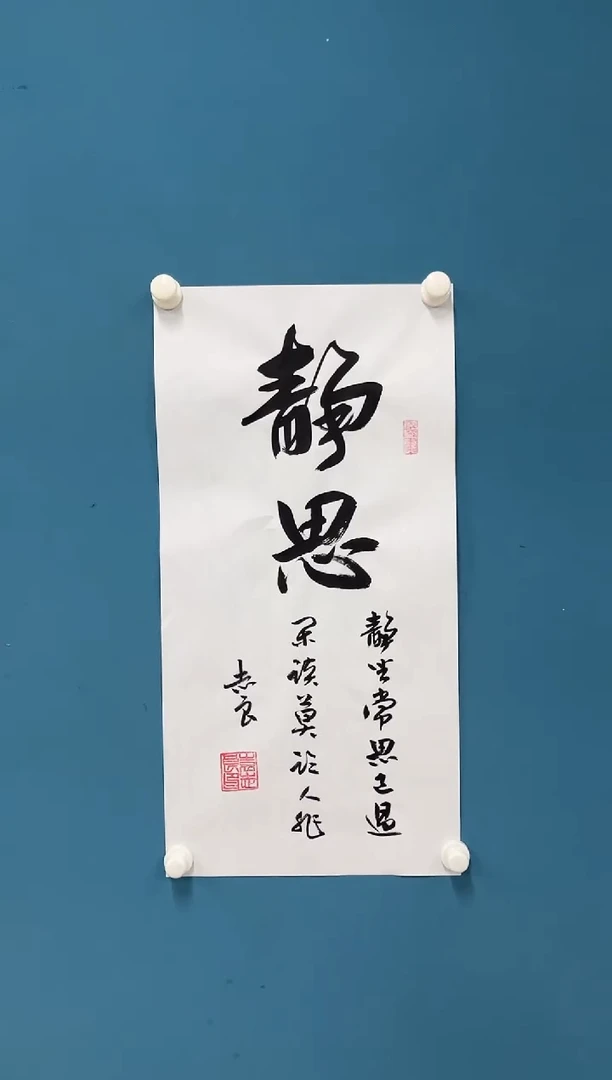 静思
静坐常思己过
闲谈莫论人非
志良